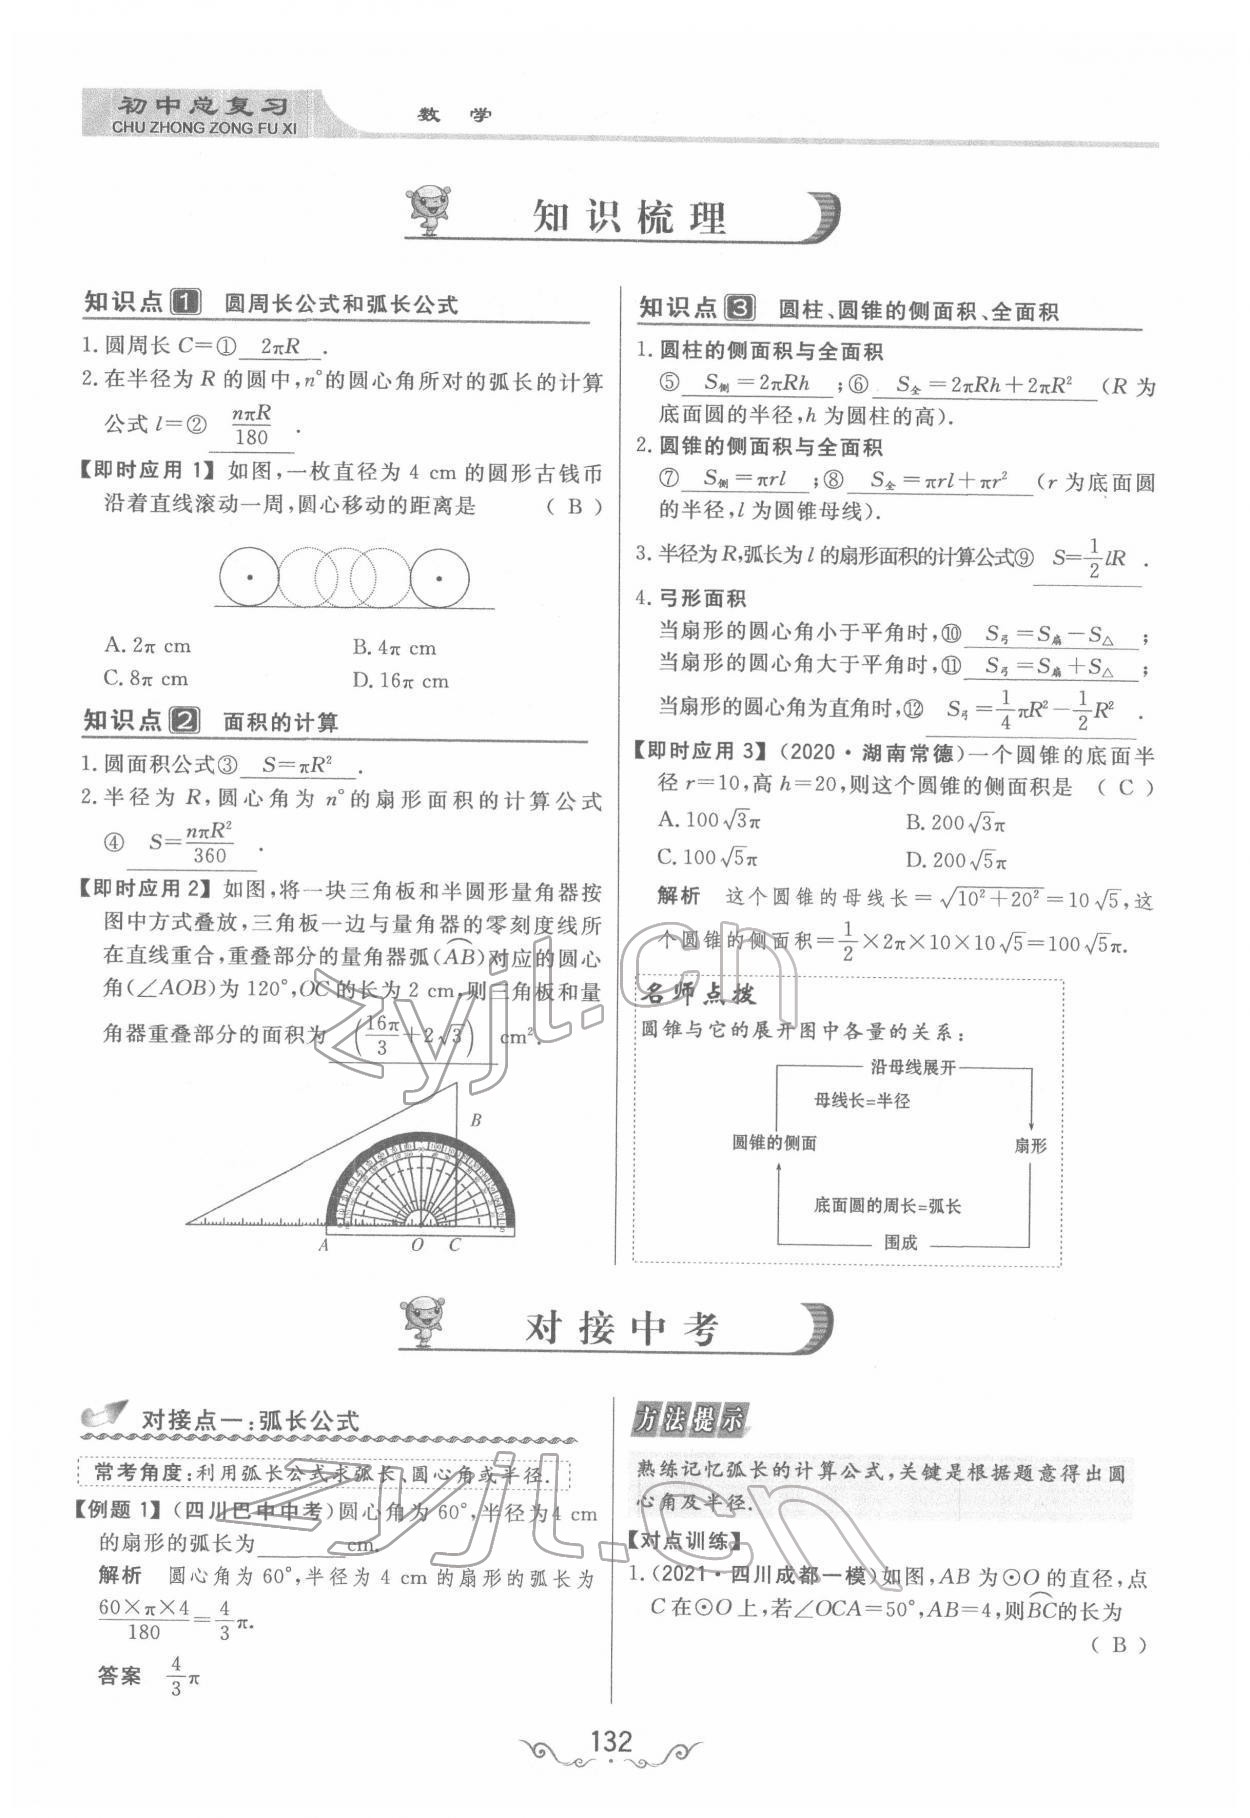 初中总复习
CHU ZHONG ZONG FU XI
数 学
知识梳理
知识点1 圆周长公式和弧长公式
1.圆周长 C=① 2πR .
2.在半径为 R 的圆中,n°的圆心角所对的弧长的计算
公式 l=② nπR/180 .
【即时应用 1】 如图,一枚直径为 4 cm 的圆形古钱币
沿着直线滚动一周,圆心移动的距离是 ( B )
A.2π cm B.4π cm
C.8π cm D.16π cm
知识点2 面积的计算
1.圆面积公式③ S=πR² .
2.半径为 R,圆心角为 n°的扇形面积的计算公式
④ S=nπR²/360 .
【即时应用 2】 如图,将一块三角板和半圆形量角器按
图中方式叠放,三角板一边与量角器的零刻度线所
在直线重合,重叠部分的量角器弧(AB)对应的圆心
角(∠AOB)为 120°,OC 的长为 2 cm,则三角板和量
角器重叠部分的面积为 (16π/3+2√3) cm².
B
A O C
知识点3 圆柱、圆锥的侧面积、全面积
1.圆柱的侧面积与全面积
⑤ S侧=2πRh ;⑥ S全=2πRh+2πR² (R 为
底面圆的半径,h 为圆柱的高).
2.圆锥的侧面积与全面积
⑦ S侧=πrl ;⑧ S全=πrl+πr² (r 为底面圆
的半径,l 为圆锥母线).
3.半径为 R,弧长为 l 的扇形面积的计算公式⑨ S=1/2 lR .
4.弓形面积
当扇形的圆心角小于平角时,⑩ S弓=S扇-S△ ;
当扇形的圆心角大于平角时,⑪ S弓=S扇+S△ ;
当扇形的圆心角为直角时,⑫ S弓=1/4 πR²-1/2 R² .
【即时应用 3】(2020·湖南常德)一个圆锥的底面半
径 r=10,高 h=20,则这个圆锥的侧面积是 ( C )
A.100√3π B.200√3π
C.100√5π D.200√5π
解析 这个圆锥的母线长=√(10²+20²)=10√5,这
个圆锥的侧面积=1/2×2π×10×10√5=100√5π.
名师点拨
圆锥与它的展开图中各量的关系:
沿母线展开
母线长=半径
圆锥的侧面 扇形
底面圆的周长=弧长
围成
对接中考
对接点一:弧长公式
常考角度:利用弧长公式求弧长、圆心角或半径.
【例题 1】(四川巴中中考)圆心角为 60°,半径为4 cm
的扇形的弧长为 cm.
解析 圆心角为 60°,半径为 4 cm 的扇形的弧长为
60×π×4/180=4/3 π.
答案 4/3 π
方法提示
熟练记忆弧长的计算公式,关键是根据题意得出圆
心角及半径.
【对点训练】
1.(2021·四川成都一模)如图,AB 为⊙O 的直径,点
C 在⊙O 上,若∠OCA=50°,AB=4,则BC的长为
( B )
132
zyjl.cn
zyjl.cn